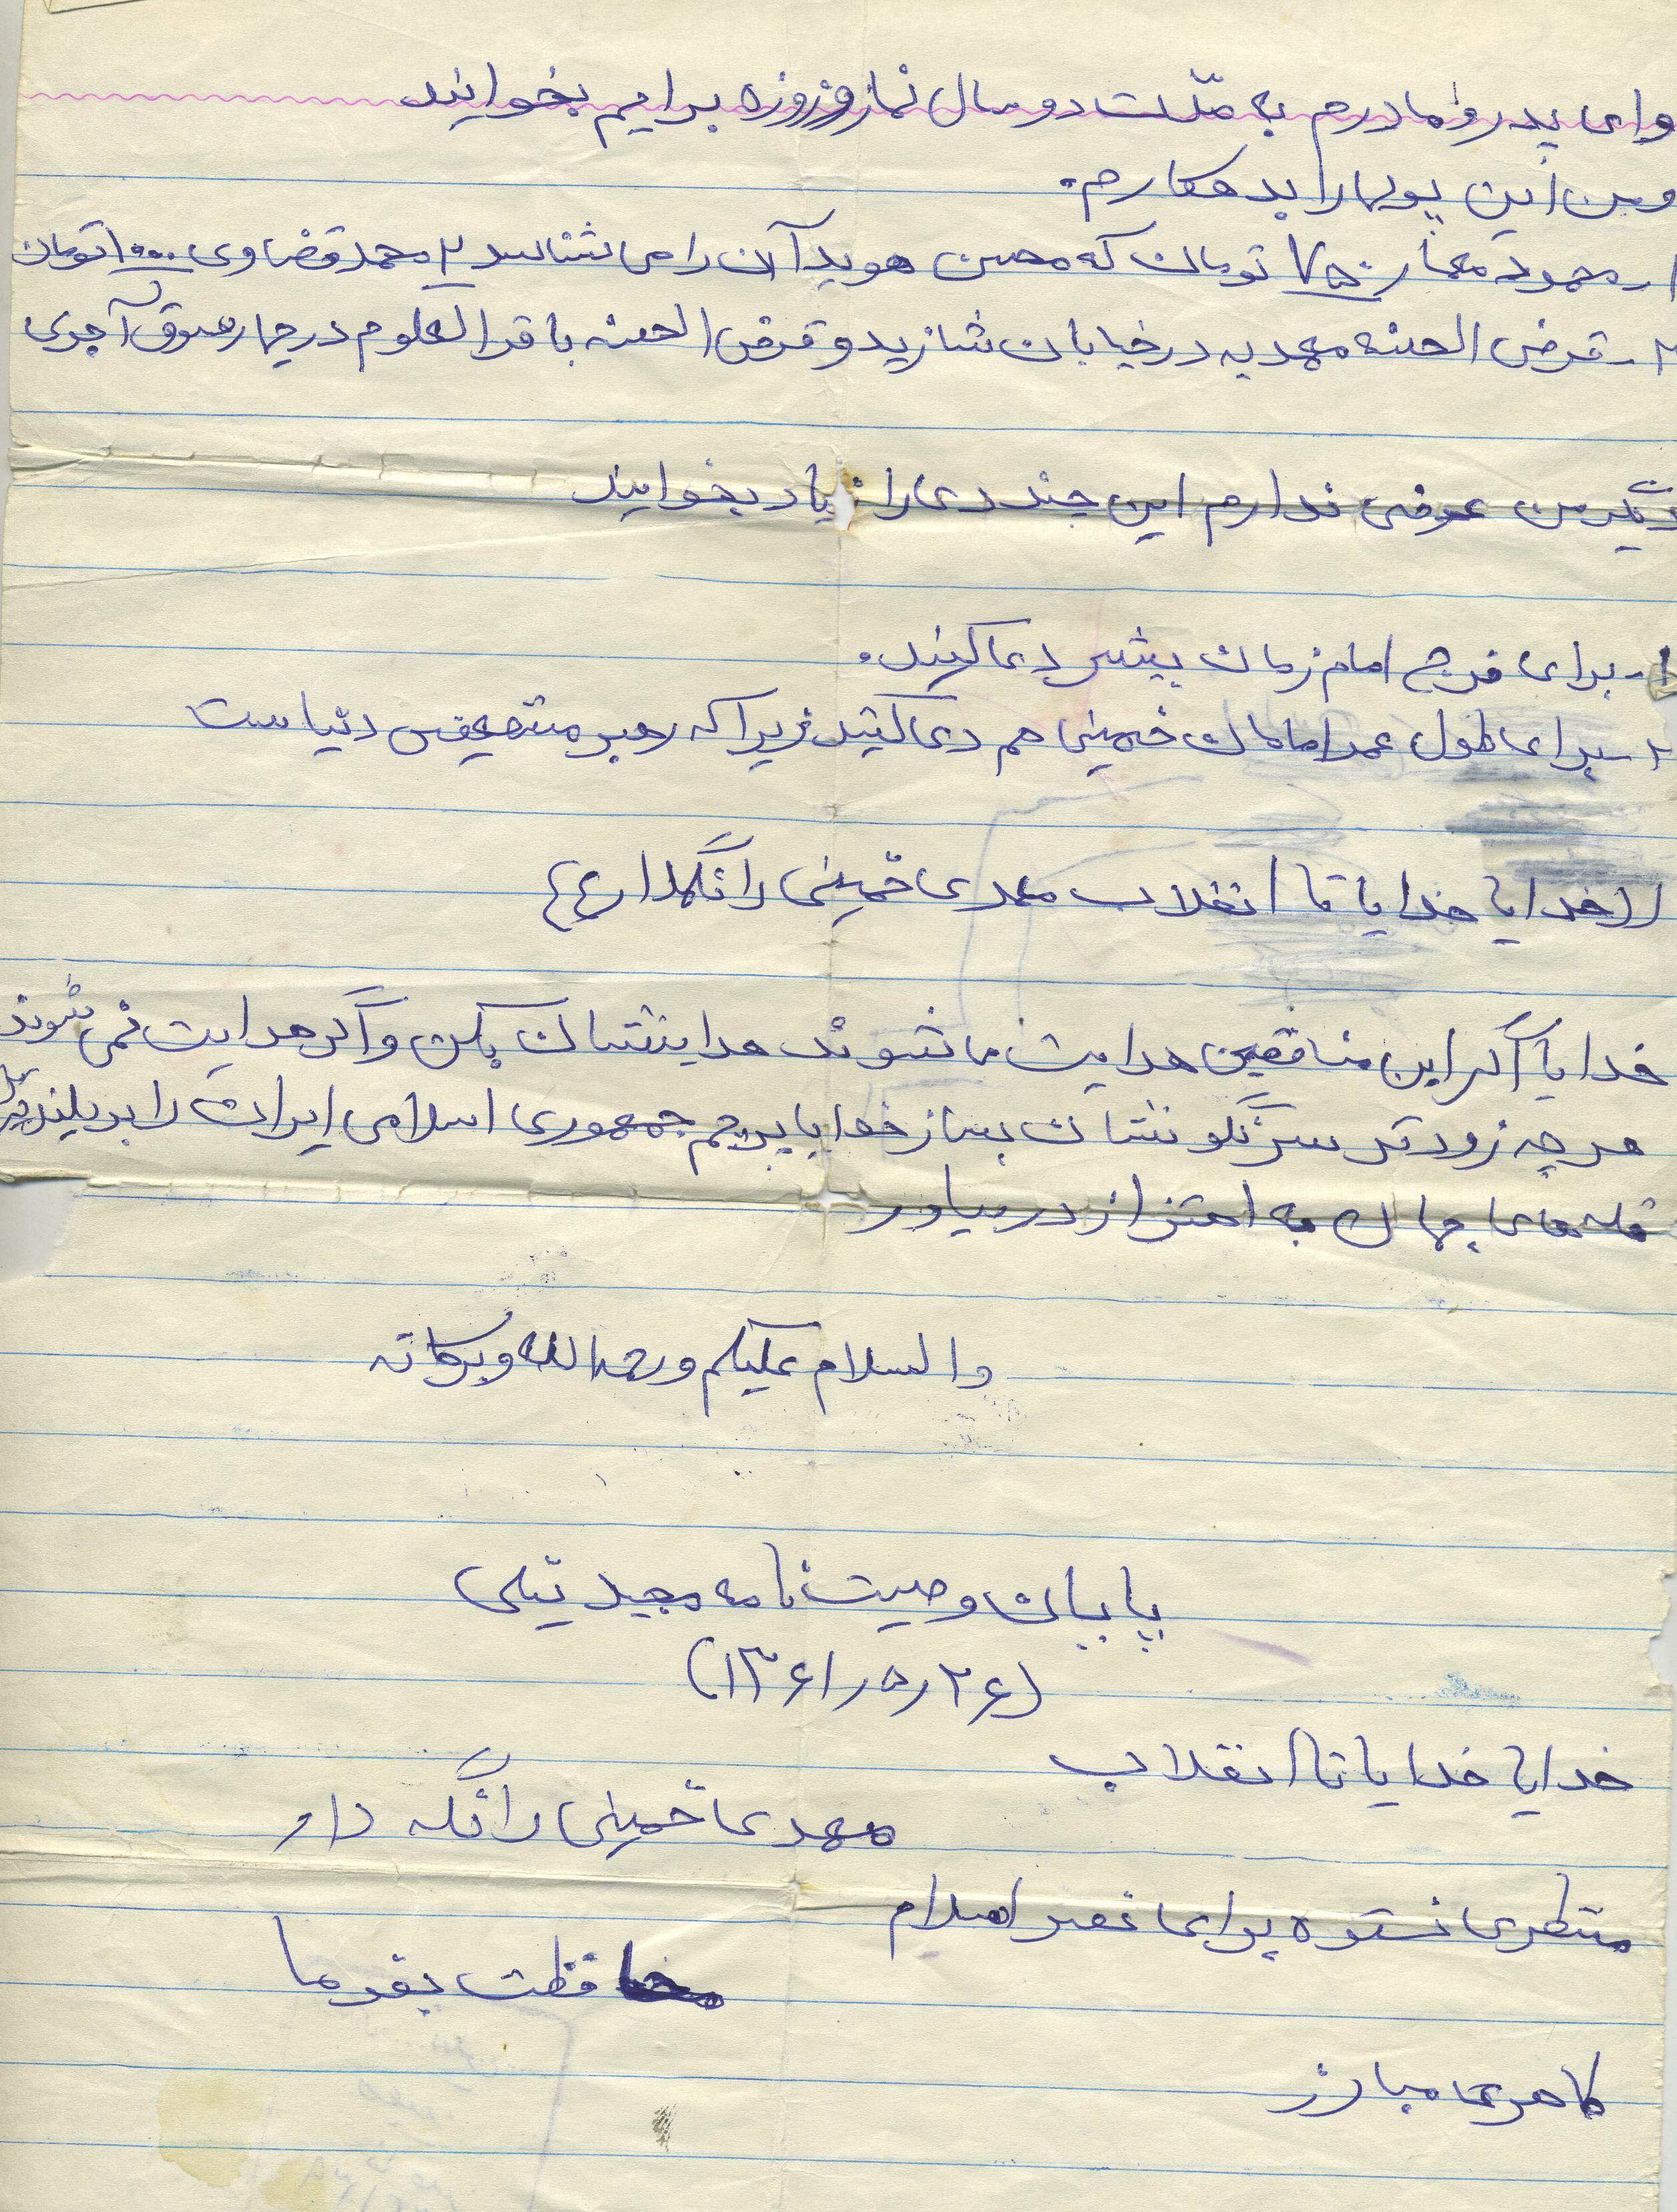 و ای پدر و مادرم به مدّت دو سال نماز و روزه برایم بخوانید
و من این پولها را بدهکارم.
۱ـ محمود معمار ۷۵۰ تومان که محسن هوید آن را می شناسد ۲ـ محمد قضاوی ۱۰۰۰ تومان
۳ـ قرض الحسنه مهدیه در خیابان شازید و قرض الحسنه باقر العلوم در چهار سوق آجری
دیگر من عرضی ندارم این چند دعا را زیاد بخوانید
۱ـ برای فرج امام زمان بیشتر دعا کنید.
۲ـ برای طول عمر امامان خمینی هم دعا کنید زیرا که رهبر مستضعفین دنیاست
((خدایا خدایا تا انقلاب مهدی خمینی را نگهدار))
خدایا اگر این منافقین هدایت ما شوند هدایتشان بکن و اگر هدایت نمی شوند
هر چه زودتر سرنگونشان بساز خدایا پرچم جمهوری اسلامی ایران را بر بلندترین
قله های جهان به اهتزاز در بیاور
والسلام علیکم و رحمه الله و برکاته
پایان وصیت نامه مجید تیلی
(۲۶ر۵ر۱۳۶۱)
خدایا خدایا تا انقلاب
مهدی خمینی را نگه دار
منتظری نستوه برای نصر اسلام
محافظت بفرما
کاهری مبارز